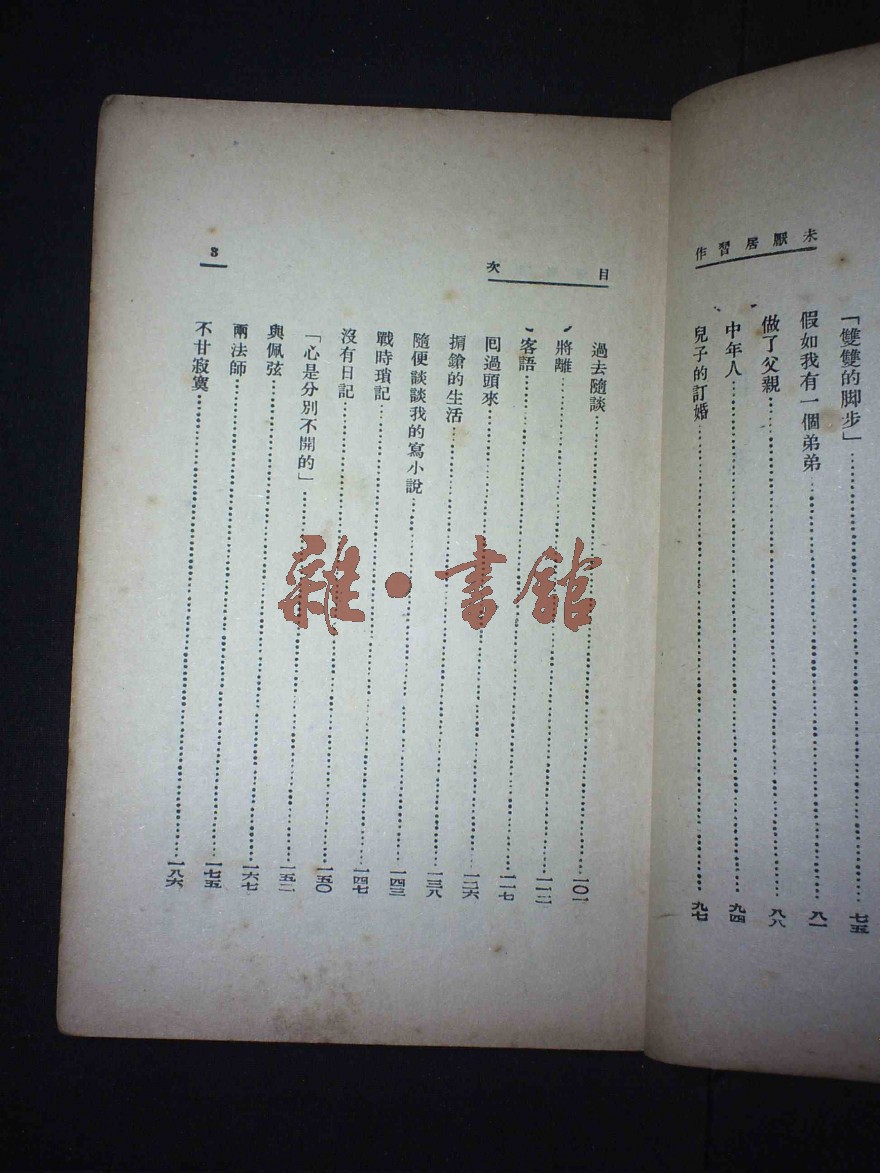 未厭居習作
「雙雙的脚步」……七五
假如我有一個弟弟……八一
做了父親……八八
中年人……九四
兒子的訂婚……九七
目次
3
過去隨談……一〇一
將離……一一二
客語……一一七
囘過頭來……一二六
掮鎗的生活……一三八
隨便談談我的寫小說……一四三
戰時瑣記……一四七
沒有日記……一五〇
「心是分別不開的」……一五二
與佩弦……一六七
兩法師……一七五
不甘寂寞……一八六
雜·書舘